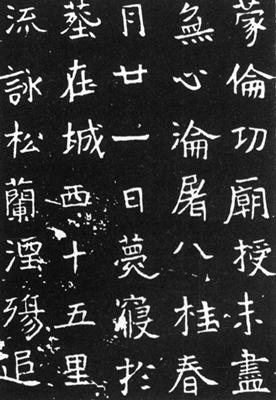 蒙倫功廟授未盡
無心淪屠八桂春
月廿一日薨寢扵
塟在城西十五里
流詠松蘭湮殤追